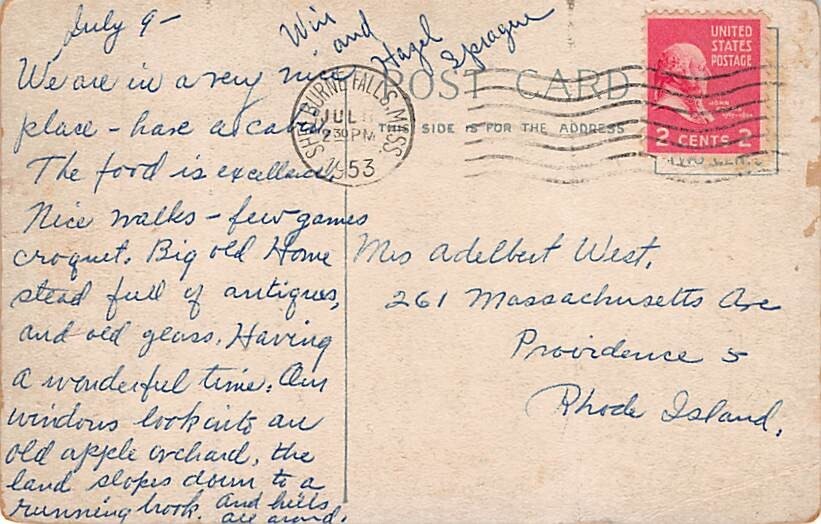 July 9-
We are in a very nice
place - have a cabin.
The food is excellent.
Nice walks - few games
croquet. Big old Home
stead full of antiques,
and old glass. Having
a wonderful time. Our
windows look into an
old apple orchard, the
land slopes down to a
running brook. and hills
all around.
Will
and
Hazel
Sprague
POST CARD
THIS SIDE IS FOR THE ADDRESS
SHELBURNE FALLS, MASS.
JUL
2 30 PM
1953
UNITED
STATES
POSTAGE
JOHN
2 CENTS 2
Mrs Adelbert West,
261 Massachusetts Ave
Providence 5
Rhode Island.